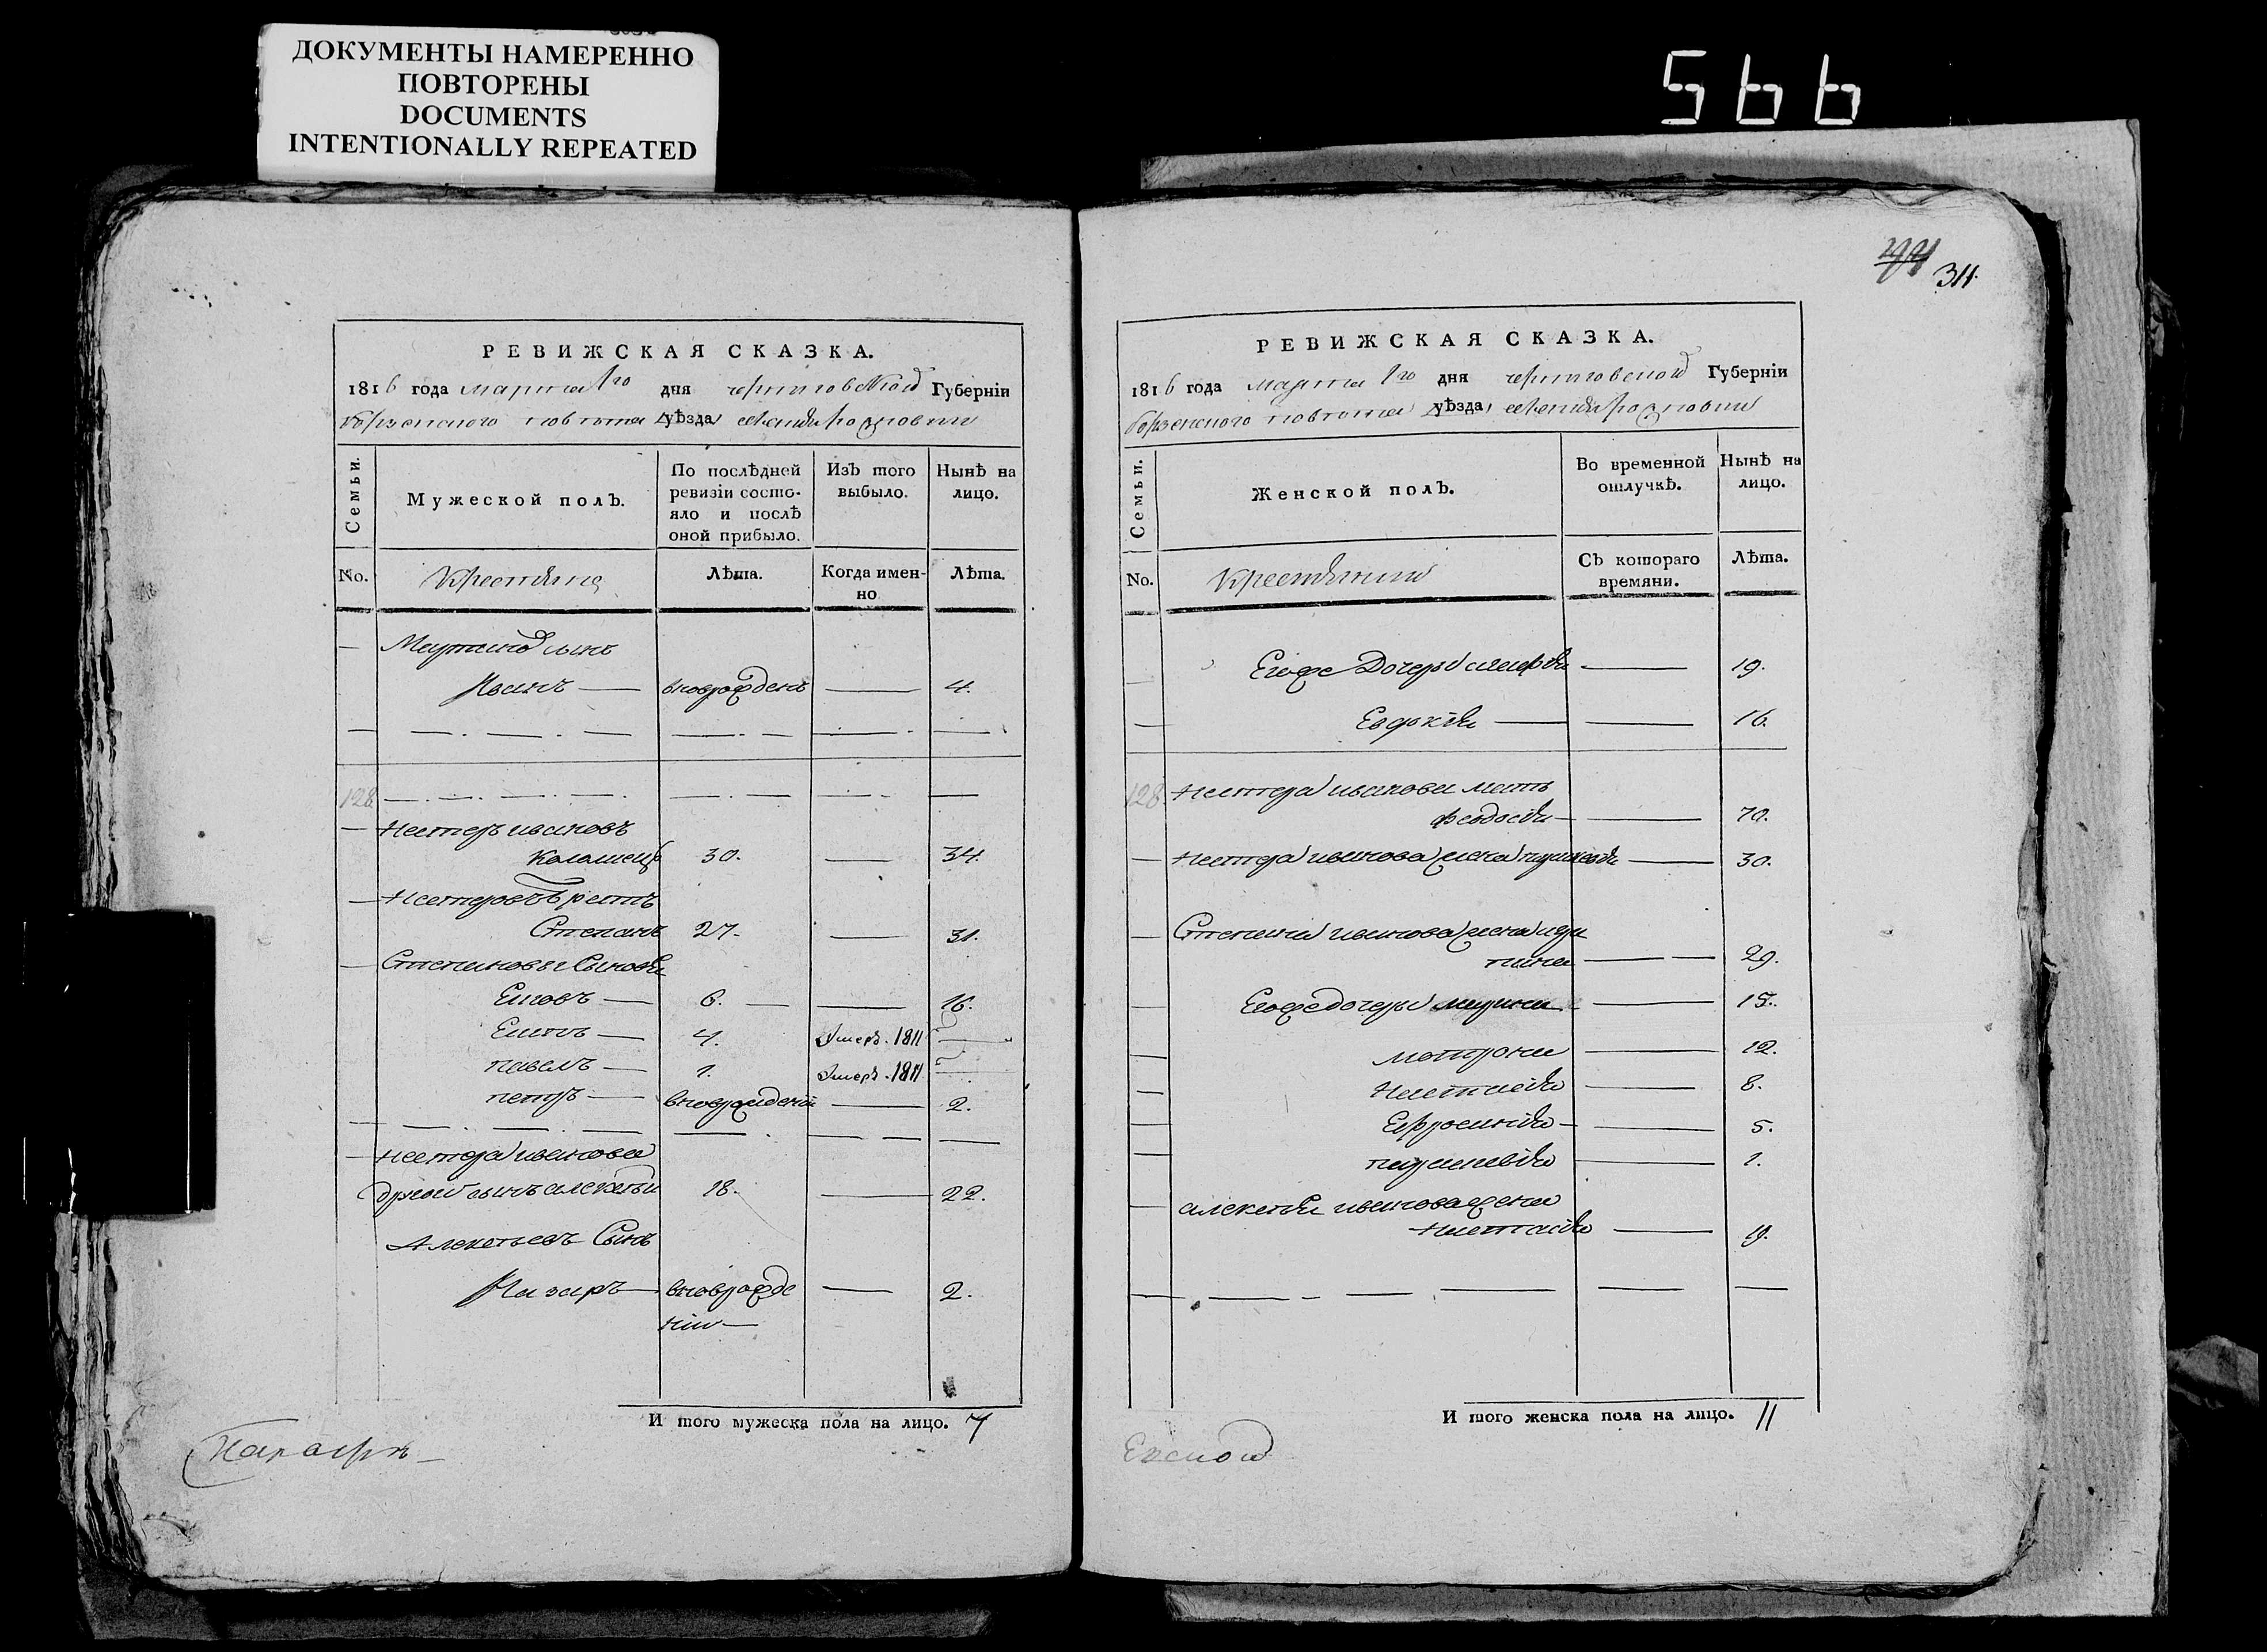 ДОКУМЕНТЫ НАМЕРЕННО
ПОВТОРЕНЫ
DOCUMENTS
INTENTIONALLY REPEATED
566
РЕВИЖСКАЯ СКАЗКА.
1816 года марта 1го дня черниговской Губерніи
борзенского повгота уѣзда
Семьи.
Мужеской полъ.
По послѣдней
ревизіи состо-
яло и послѣ
оной прибыло.
Изъ того
выбыло.
Нынѣ на
лицо.
No.
Крестьяне
Лѣта.
Когда имен-
но
Лѣта.
Мартина сынъ
Иванъ — вновьрожденъ — 4.
128
Нестеръ ивановъ
Коломеец 30. — 34.
Нестеровъ братъ
Степанъ 27. — 31.
Степановы Сыновья
6. — 16.
4. Умеръ. 1811
павелъ — 1. Умеръ. 1811
петръ — вноврожденій — 2.
нестера иванова
другой сынъ алексѣй 18. — 22.
Алексѣевъ Сынъ
Назаръ — вноврожде
ній — 2.
И того мужеска пола на лицо. 7
311.
РЕВИЖСКАЯ СКАЗКА.
1816 года марта 1го дня черниговской Губерніи
борзенского повгота уѣзда
Семьи.
Женской полъ.
Во временной
отлучкѣ.
Нынѣ на
лицо.
No.
Крестьянки
Съ котораго
времяни.
Лѣта.
Егоже Дочеры — 19.
Евдокія — 16.
128. Нестера иванова мать
феодосія — 70.
Нестера иванова жена — 30.
Степана иванова жена ири
— 29.
Егоже дочеры марина — 15.
мотрона — 12.
Настасія — 8.
Ефросинія — 5.
параскевія — 1.
алексѣя иванова жена
Настасія — 19.
И того женска пола на лицо. 11